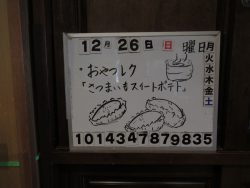 12月26日 日 曜日
月
火
水
木
金
土
・おやつレク
「さつまいもスイートポテト」
1014347879835